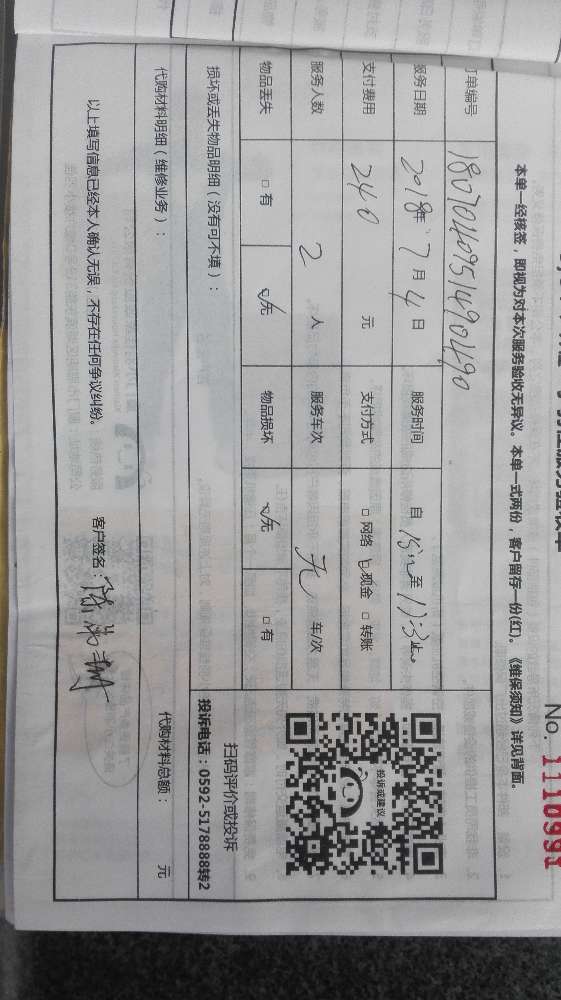 服务验收单
No. 1110991
本单一经核签，即视为对本次服务验收无异议。本单一式两份，客户留存一份(红)。《维保须知》详见背面。
订单编号 1807040951490490
服务日期 2018年 7月 4日 服务时间 自 15: 至 17:3 止
支付费用 240 元 支付方式 □ 网络 ☑ 现金 □ 转账
服务人数 2 人 服务车次 无 车/次
物品丢失 □ 有 ☑ 无 物品损坏 ☑ 无 □ 有
投诉或建议
扫码评价或投诉
投诉电话：0592-5178888转2
损坏或丢失物品明细（没有可不填）：
代购材料明细（维修业务）： 代购材料总额： 元
以上填写信息已经本人确认无误，不存在任何争议纠纷。 客户签名：